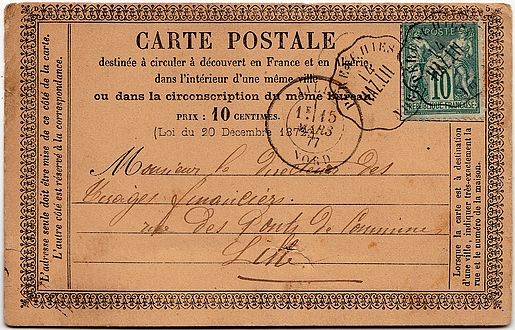 CARTE POSTALE
destinée à circuler à découvert en France et en Algérie
dans l'intérieur d'une même ville
ou dans la circonscription du même bureau.
PRIX : 10 CENTIMES.
(Loi du 20 Décembre 187
Monsieur le Directeur des
Tirages financiers.
rue des Ponts de Comines
Lille.
L'adresse seule doit être mise de ce côté de la carte.
L'autre côté est réservé à la correspondance.
Lorsque la carte est à destination
d'une ville, indiquer très-exactement la
rue et le numéro de la maison.
POSTE
10
REPUBLIQUE FRANÇAISE
LILLE
15 15
MARS
77
NORD
14
14